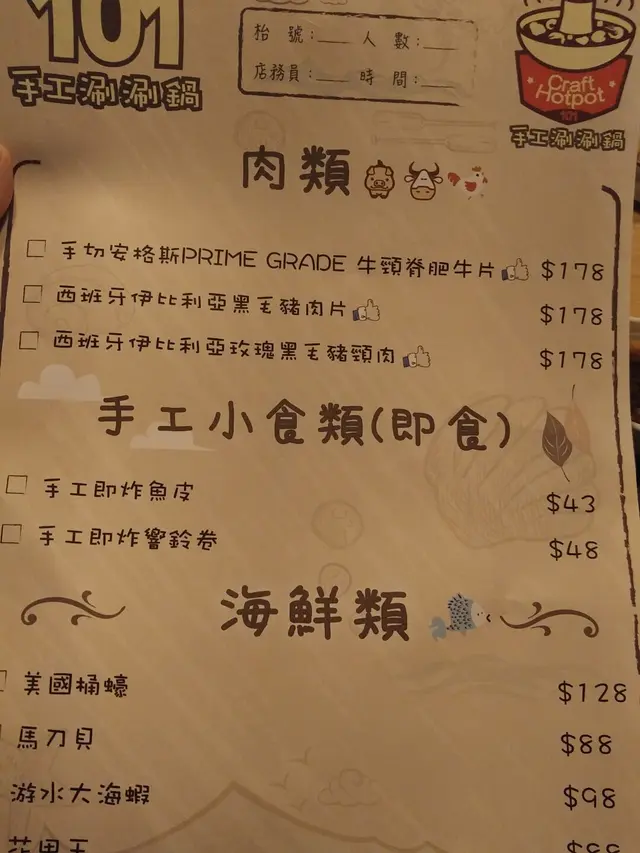 101
手工涮涮鍋
枱 號：___ 人 數：___
店務員：___ 時 間：___
Craft
Hotpot
101
手工涮涮鍋
肉類
□ 手切安格斯PRIME GRADE 牛頸脊肥牛片 $178
□ 西班牙伊比利亞黑毛豬肉片 $178
□ 西班牙伊比利亞玫瑰黑毛豬頸肉 $178
手工小食類(即食)
□ 手工即炸魚皮 $43
□ 手工即炸響鈴卷 $48
海鮮類
□ 美國桶蠔 $128
馬刀貝 $88
游水大海蝦 $98
花甲王